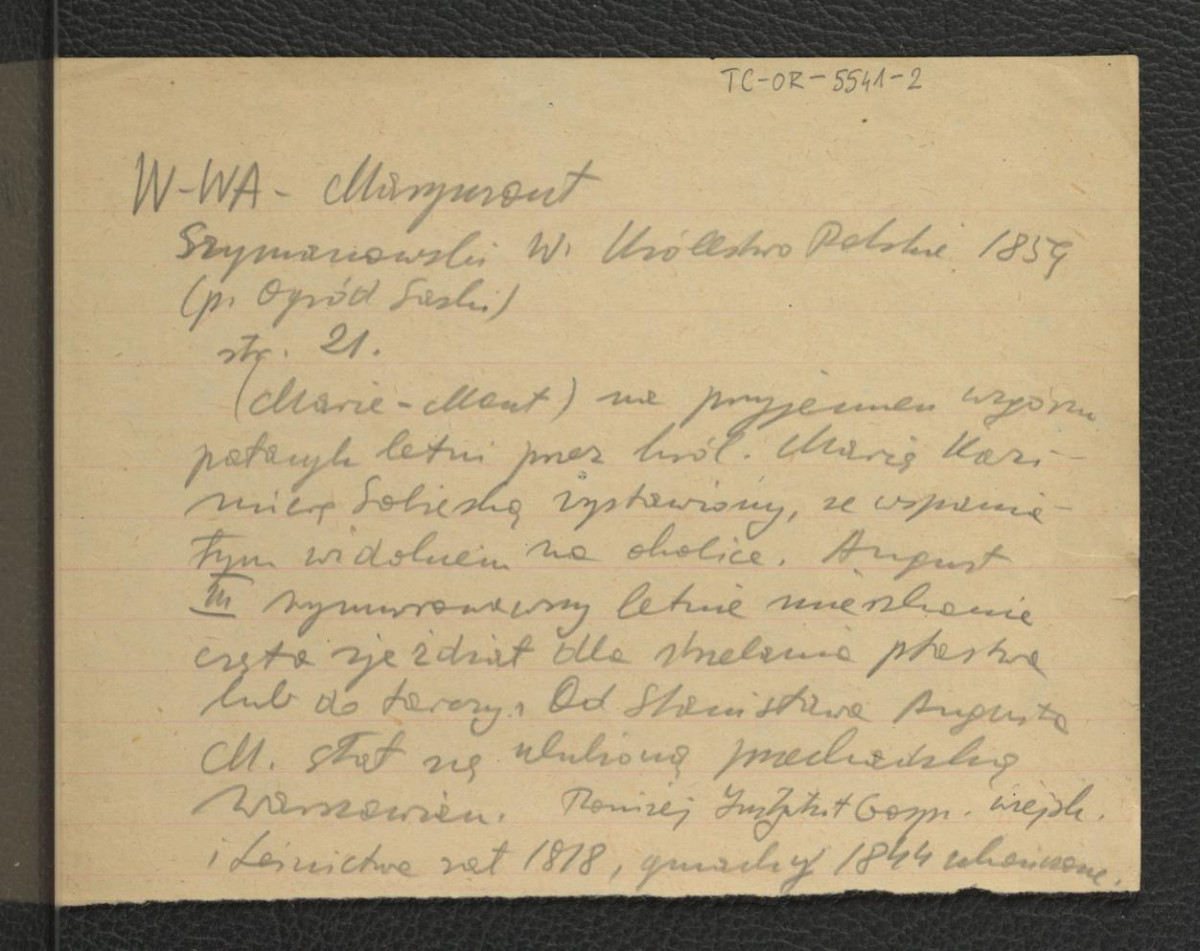 TC-OR-5541-2
W-WA - Marymont
Szymanowski W. Królestwo Polskie 1859
(p. Ogród Saski)
str. 21.
(Marie-Mont) na przyjemnem wzgórzu
pałacyk letni przez król. Marię Kazi-
mierę Sobieską wystawiony, ze wspania-
łym widokiem na okolice. August
III wymurowawszy letnie mieszkanie
często zjeżdżał dla strzelania ptastwa
lub do tarczy. Od Stanisława Augusta
M. stał się ulubioną przechadzką
Warszawian. Poniżej Instytut Gosp. wiejsk.
i Leśnictwa zał 1818, gmachy 1844 ukończone.